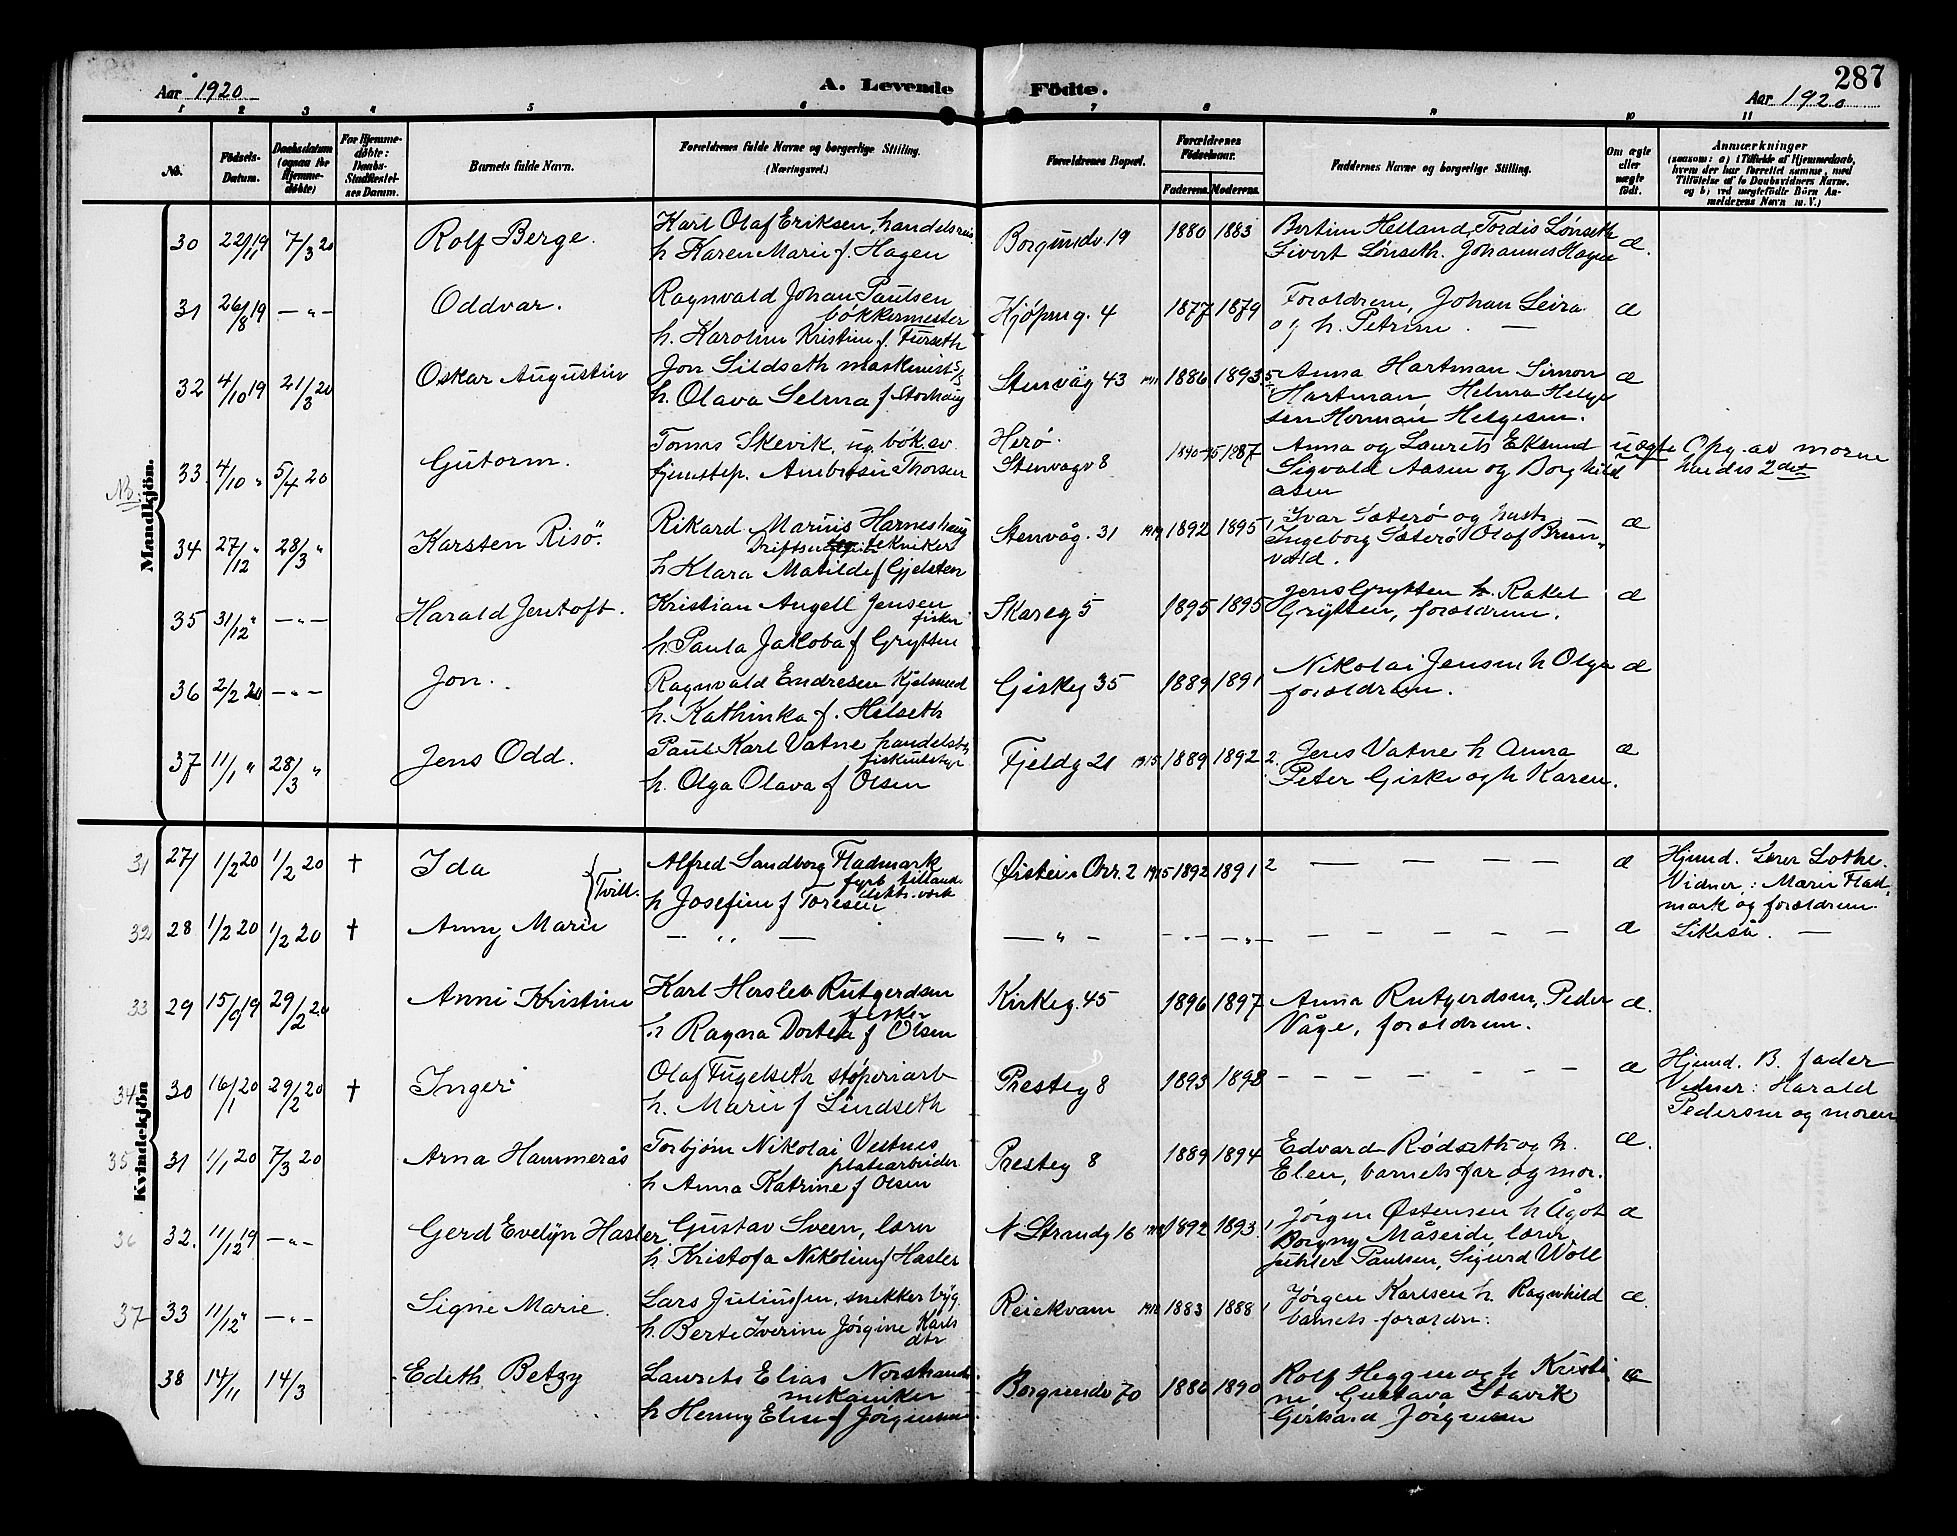 287
Aar 1920
A. Levende Födte.
Aar 1920
1 2 3 4 5 6 7 8 9 10 11
No.
Födsels-Datum.
Daabsdatum (ogsaa for Hjemme-døbte)
For Hjemme-døbte: Daabs-Stadfæstel-ses Datum.
Barnets fulde Navn.
Forældrenes fulde Navne og borgerlige Stilling.
(Næringsvei.)
Forældrenes Bopæl.
Forældrenes Födselsaar.
Faderens. Moderens.
Faddernes Navne og borgerlige Stilling.
Om ægte eller uægte født.
Anmærkninger
(saasom: a) i Tilfælde af Hjemmedaab,
hvem der har forrettet samme, med
Tilføielse af to Daabsvidners Navne,
og b) ved uægtefødte Børn An-
melderens Navn m. V.)
Mandkjön.
30 22/11 19 7/3 20 Rolf Berge. Karl Olaf Eriksen, handelsreis.
h Karen Marie f. Hagen
Borgundv. 19 1880 1883 Bertin Helland, Tordis Lønseth
Sivert Lønseth. Johannes Hagen æ.
31 26/8 19 — " — Oddvar. Ragnvald Johan Paulsen
bøkkermester
h. Karoline Kristine f. Furseth
Kjøpmg. 4 1877 1879 Forældrene, Johan Leira
og h. Petrine. — æ
32 4/10 19 21/3 20 Oskar Augustin Jon Sildseth maskinist
h. Olava Selma f Storhaug
Stenväg 43 1911 1886 1893 5 Anna Hartman Simon
Hartman, Helma Helge
sen Herman Helgesen. æ
No.
33. 4/10 " 5/4 20 Gutorm. Tomas Skevik, ug. bøk. av
tjenstep. Ambertsen Thorsen
Herö.
Stenvagv 8 1887 Anna og Laurits Eklund
Sigvald Aasen og Borghild
asen uægte Opg. av moren
hendes 2det
34 27/12 " 28/3 " Karsten Risö. Rikard Marius Harneshaug
tekniker
h Klara Matilde f Gjelsten
Stenvåg. 31 1919 1892 1895 1 Ivar Sæterø og hust.
Ingeborg Sæterø Olaf Brun-
vold. æ
35 31/12 " — " — Harald Jentoft. Kristian Angell Jensen
fisker
h. Paula Jakoba f Grytten
Skareg 5 1895 1895 Jens Grytten h. Rakel
Grytten, forældrene. æ
36 2/2 20 — " — Jon. Ragnvald Endresen Kjelsund
h. Kathinka f. Hilseth
Giskeg 35 1889 1891 Nikolai Jensen h Olga
forældrene. æ
37 11/1 " 28/3 " Jens Odd. Paul Karl Vatne handelsb.
h. Olga Olava f Olsen
Fjeldg 21 1915 1889 1892 2. Jens Vatne h Anna
Peter Giske og h Karen. æ
Kvindekjön
31 27 1/2 20 1/2 20 † Ida } Tvill. Alfred Sandborg Fladmark
fyrb. tilland.
elektr. verk
h Josefine f Toresen
Øistein Orr. 2 1915 1892 1891 2 — — — — æ Hjemd. Lærer Lothe.
Vidner: Marie Flad-
mark og forældrene.
32 28 1/2 20 1/2 20 † Anny Marie — " — — " — — " — — " — — — — — — æ Likeså. —
33 29 15/9 19 29/2 20 Anni Kristine Karl Herslev Rutgerdsen
fisker
h Ragna Dortea f Olsen
Kirkeg. 45 1896 1897 Anna Rutgerdsen, Peder
Våge, forældrene. æ.
34 30 16/1 20 29/2 20 † Inger Olaf Fugelseth støperiarb
h. Marie f Lindseth
Presteg 8 1893 1898 — — — — — — æ Hjemd. B. Jader
Vidner: Harald
Pedersen og moren
35 31 1/1 20 7/3 20 Arna Hammerås Torbjørn Nikolai Vestnes
platearbeider
h Anna Katrine f Olsen
Presteg 8 1889 1894 Edvard Rødseth og h.
Elen, barnets far og mor. æ.
36 32. 11/12 19 — " — Gerd Evelyn Hasler. Gustav Sveen, lærer
h. Kristofa Nikoline f Hasler
N Strandg 16 1892 1893 1 Jörgen Østensen h Ågot
Borgny Måseide, lærer
Paulsen, Sigurd Woll æ
37 33 11/12 " — " — Signe Marie. Lars Julius Jen, snekker byg.
h. Berte Iverine Jørgine Karls
dtr
Reiekvam 1912 1883 1888 1 Jørgen Karlsen h. Ragnhild
barnets forældre. æ.
38 14/11 14/3 Edith Betzy Laurits Elias Norstrand
mekaniker
h Henny Elise f Jørgensen.
Borgundv 70 1880 1890 Rolf Heggen og h Kristi
ne Gustava Stavik
Gerhard Jörgensen æ